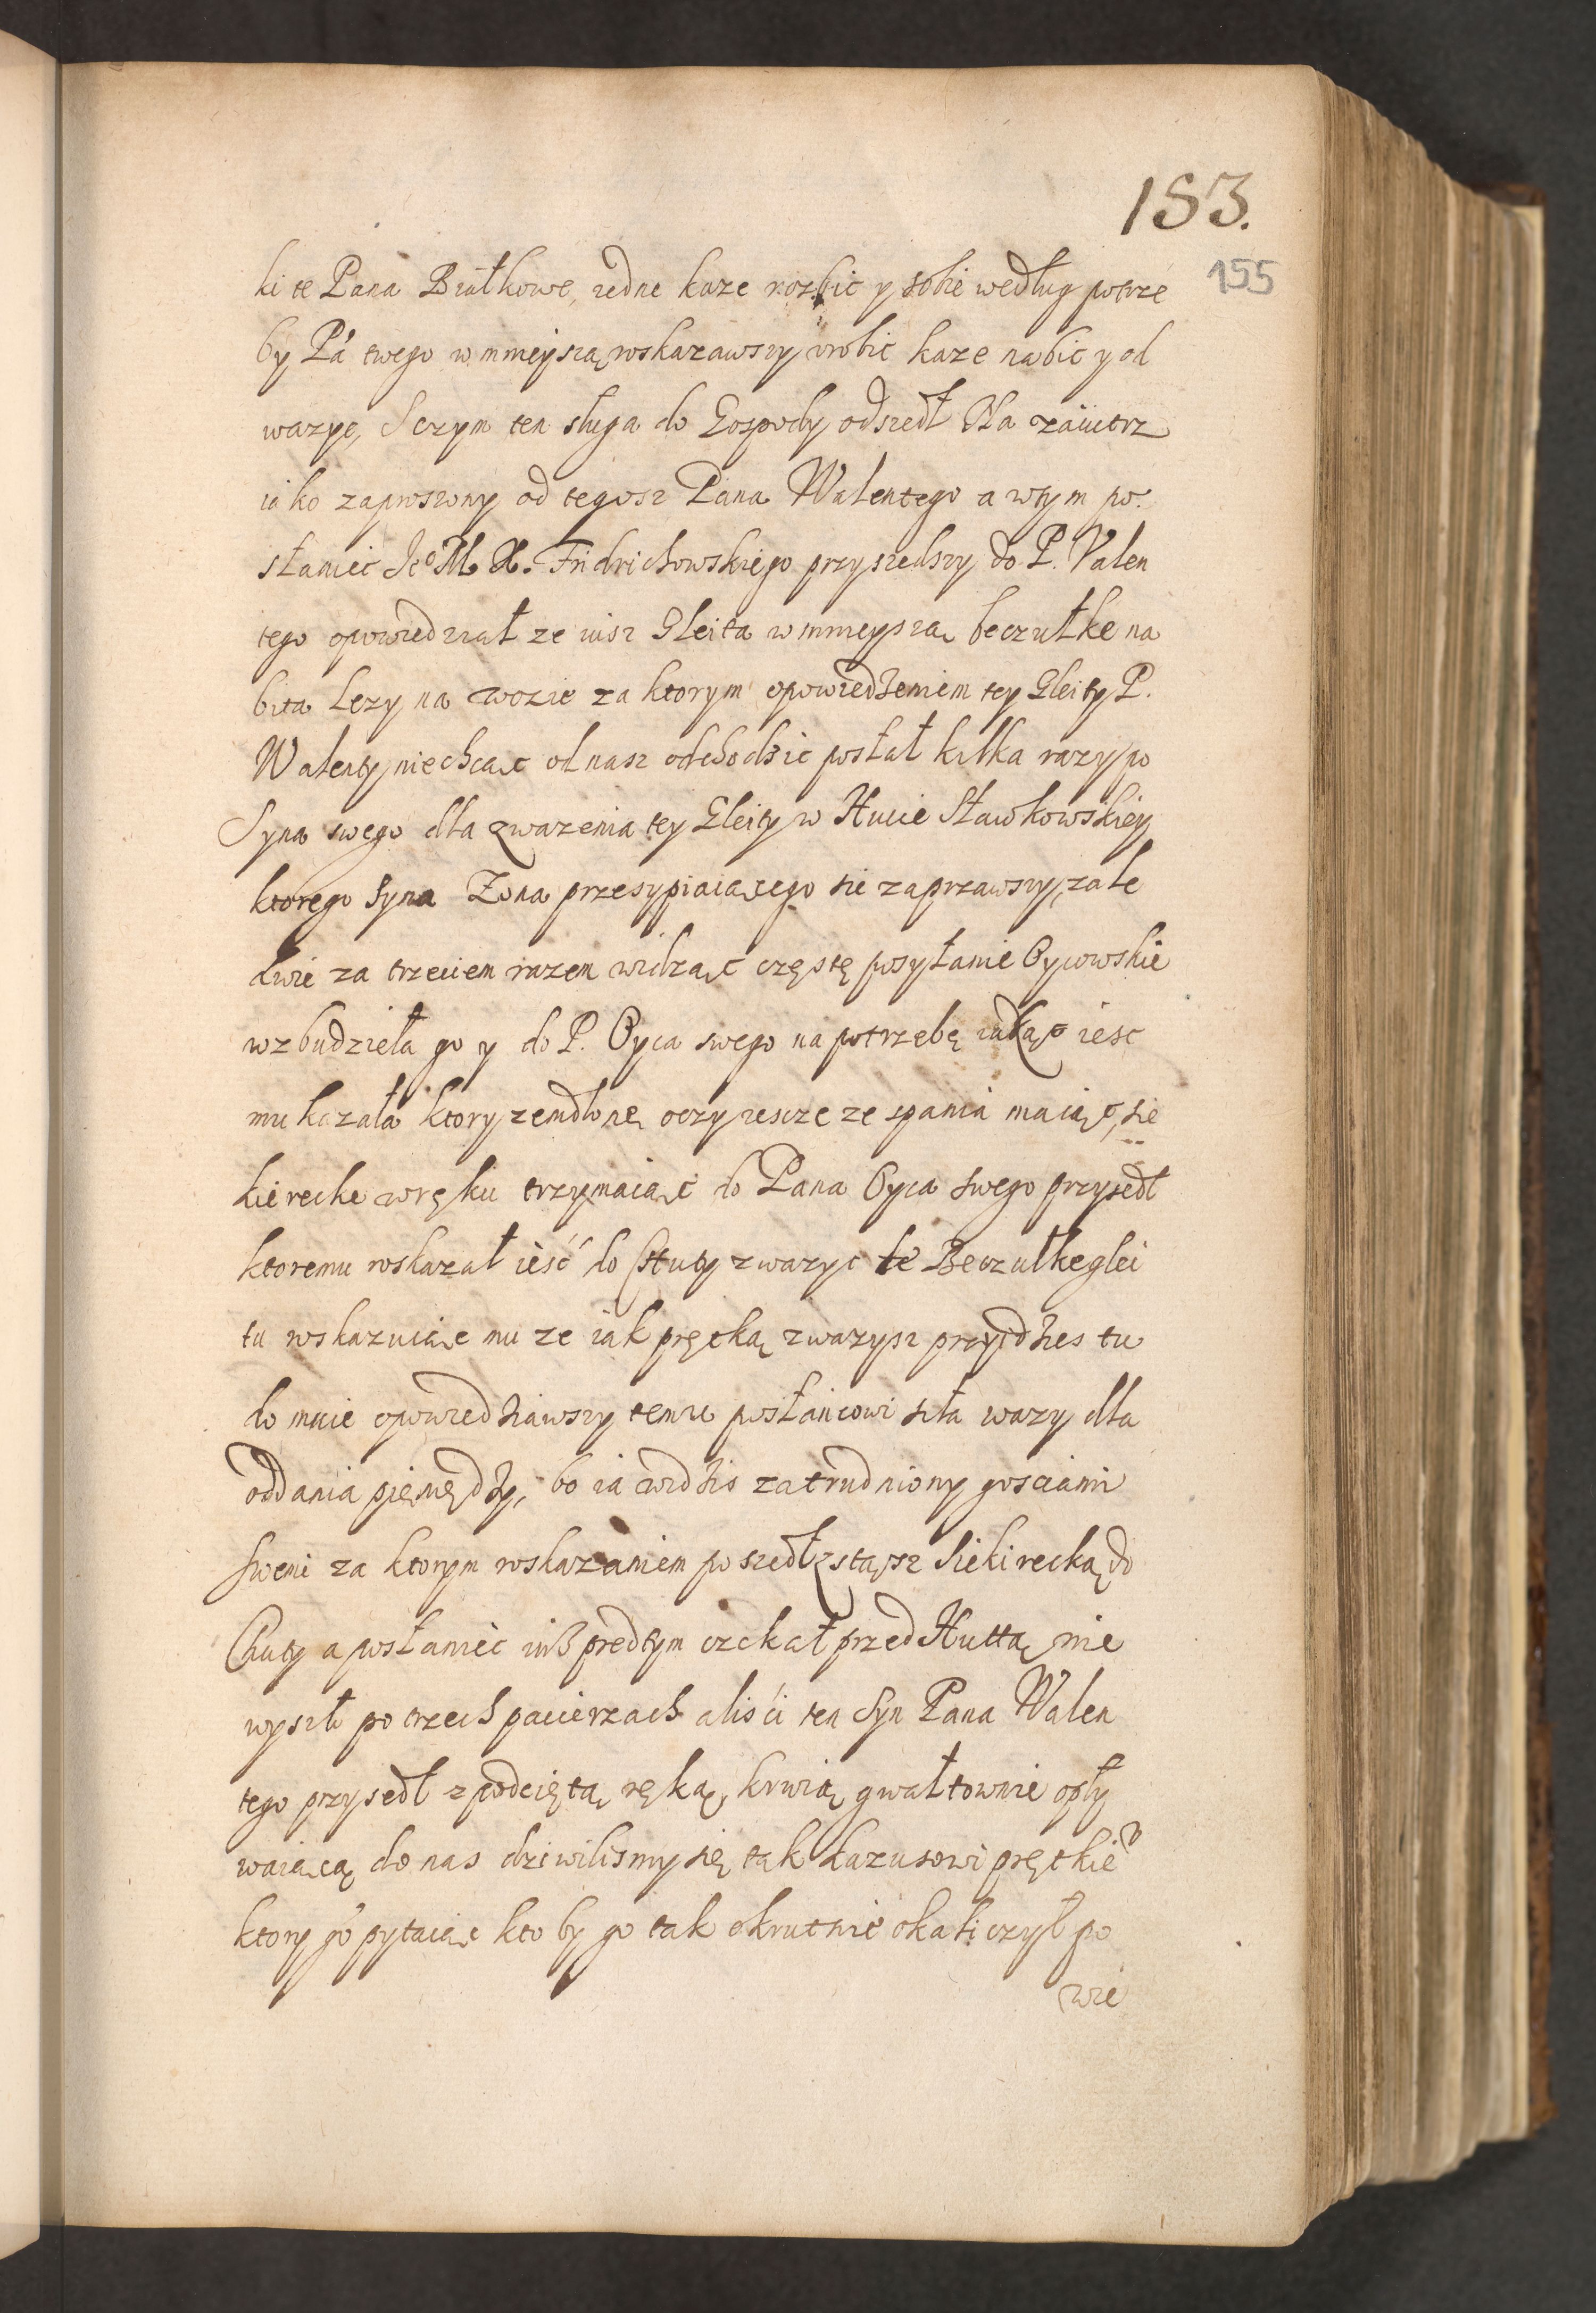 153.
155
ki te Pana Białkowe, iedne kaze rozbic y sobie według potrze
by Pa twego w mnieyszą roskazawszy urobic kaze nabic y od
wazyc, Sczym ten sługa do Gospody odszedł Na zaiutrz
iako zaproszony od tegosz Pana Walentego a wtym po
słaniec Je° M. X. Fridrichowskiego przyszedszy do P. Valen
tego opowiedział ze iusz Gleita w mnieyszą beczułke na
bita Lezy na wozie za ktorym opowiedzeniem tey Gleity P.
Walenty niechcąc od nasz odchodzic posłał kilka razy po
Syna swego dla zwazenia tey Gleity w Hucie Sławkowskiey
ktorego Syna Zona przesypiaiącego sie zaprzawszy, zale
dwie za trzeciem razem widząc częstę posyłanie Oycowskie
wzbudzieła go y do P. Oyca swego na potrzebę iakąs iesc
mu kazała ktory zemdlonę oczy iescze ze spania maiąc, sie
kierecke wręku trzymaiąc do Pana Oyca swego przysedł
ktoremu roskazał ieść do Huty zwazyc te Beczułke glei
tu roskazuiąc mu ze iak prętką zwazysz przydzies tu
do mnie opowiedziawszy temu posłańcowi siła wazy dla
oddania pięnędzy, bo ia widzis zatrudniony gosciami
swemi za ktorym roskazaniem poszedł z stąsz siekirecką do
Chuty a posłaniec iusz predtym czekał przed Huttą nie
wyszło po trzech pacierzach aliści ten Syn Pana Walen
tego przysedł z podciętą ręką, krwią gwałtownie opły
waiącą do nas dziwilismy się tak kazusowi prętkie°
ktory go pytaiąc kto by go tak okrutnie okaliczył po
wie